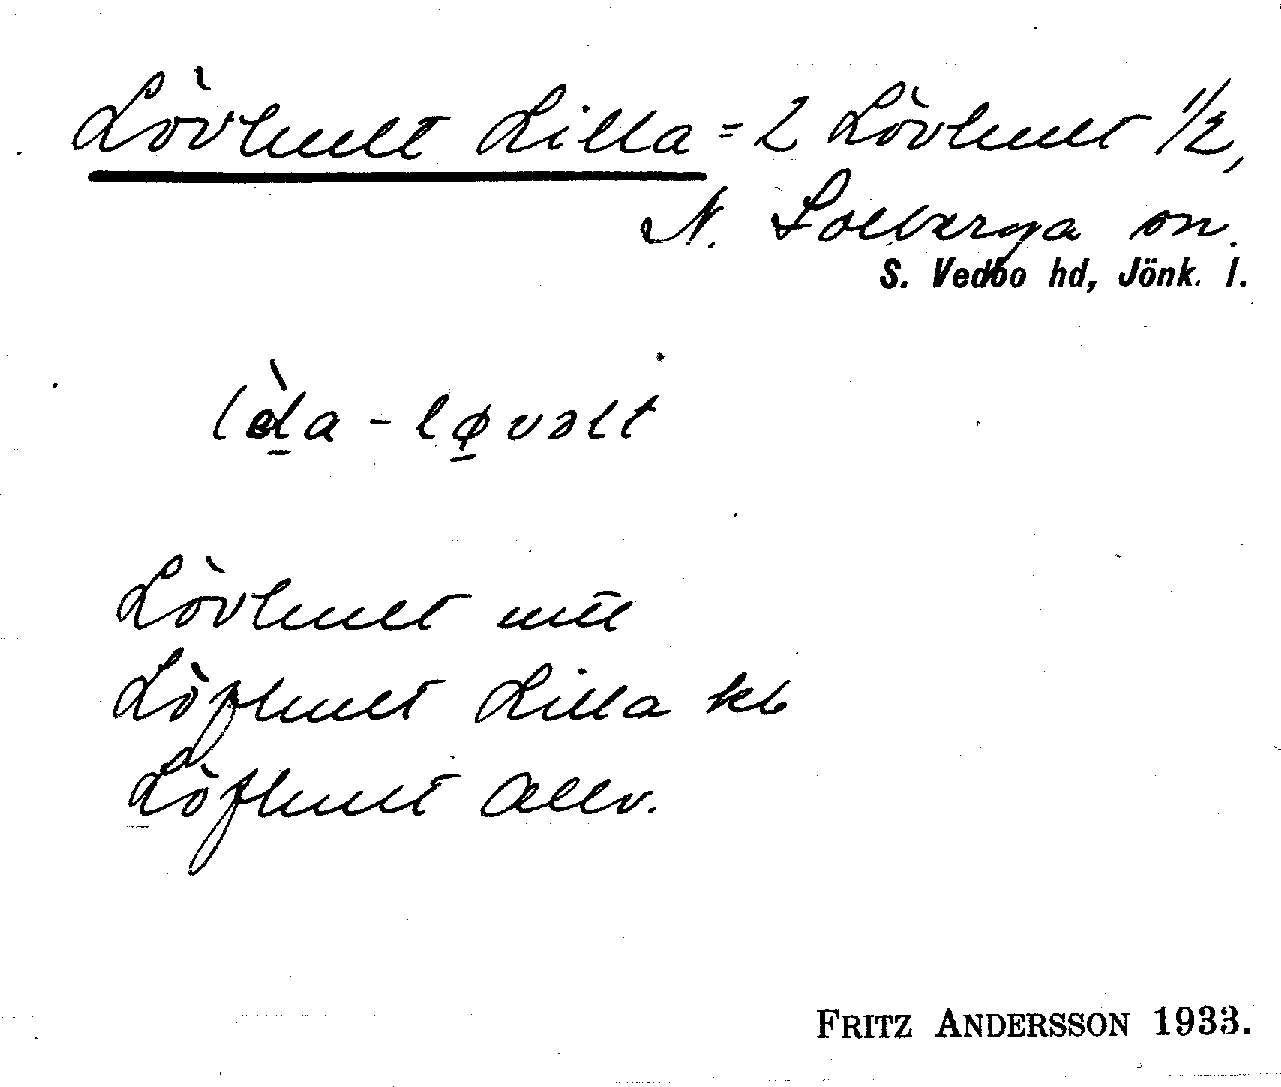 Lövhult Lilla = 2 Lövhult 1/2,
N. Solberga sn.
S. Vedbo hd, Jönk. l.
Lövhult mtl
Löfhult Lilla kb
Löfhult Allv.
FRITZ ANDERSSON 1933.